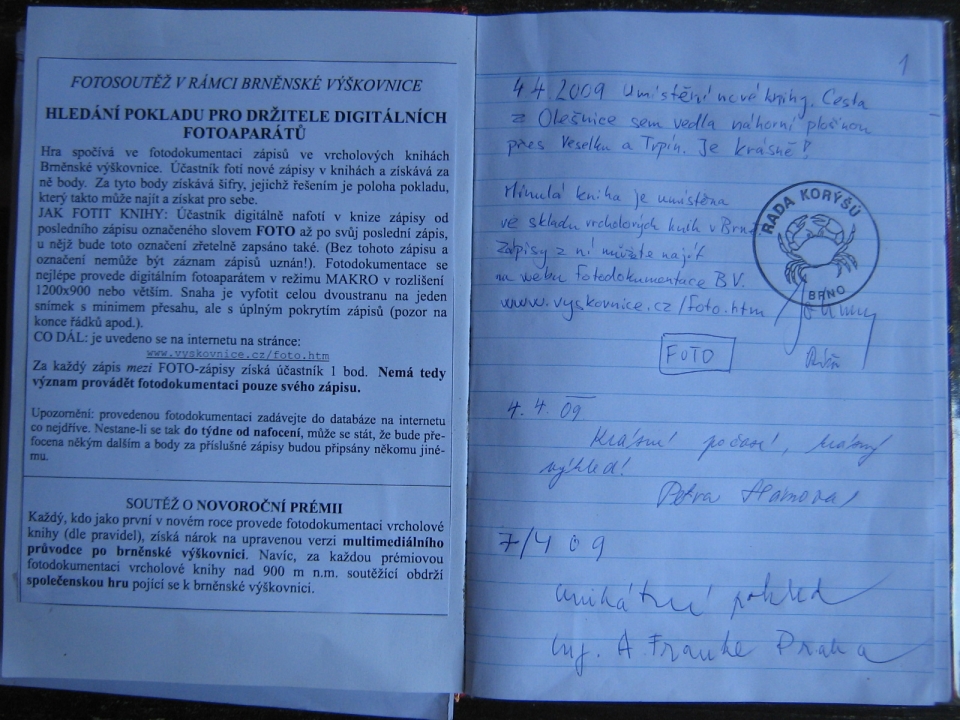 FOTOSOUTĚŽ V RÁMCI BRNĚNSKÉ VÝŠKOVNICE
HLEDÁNÍ POKLADU PRO DRŽITELE DIGITÁLNÍCH
FOTOAPARÁTŮ
Hra spočívá ve fotodokumentaci zápisů ve vrcholových knihách
Brněnské výškovnice. Účastník fotí nové zápisy v knihách a získává za
ně body. Za tyto body získává šifry, jejichž řešením je poloha pokladu,
který takto může najít a získat pro sebe.
JAK FOTIT KNIHU: Účastník digitálně nafotí v knize zápisy od
posledního zápisu označeného slovem FOTO až po svůj poslední zápis,
u nějž bude toto označení zřetelně zapsáno také. (Bez tohoto zápisu a
označení nemůže být záznam zápisů uznán!). Fotodokumentace se
nejlépe provede digitálním fotoaparátem v režimu MAKRO v rozlišení
1200x900 nebo větším. Snaha je vyfotit celou dvoustranu na jeden
snímek s minimem přesahu, ale s úplným pokrytím zápisů (pozor na
konce řádků apod.).
CO DÁL: je uvedeno se na internetu na stránce:
www.vyskovnice.cz/foto.htm
Za každý zápis mezi FOTO-zápisy získá účastník 1 bod. Nemá tedy
význam provádět fotodokumentaci pouze svého zápisu.
Upozornění: provedenou fotodokumentaci zadávejte do databáze na internetu
co nejdříve. Nestane-li se tak do týdne od nafocení, může se stát, že bude pře-
focena někým dalším a body za příslušné zápisy budou připsány někomu jiné-
mu.
SOUTĚŽ O NOVOROČNÍ PRÉMII
Každý, kdo jako první v novém roce provede fotodokumentaci vrcholové
knihy (dle pravidel), získá nárok na upravenou verzi multimediálního
průvodce po brněnské výškovnici. Navíc, za každou prémiovou
fotodokumentaci vrcholové knihy nad 900 m n.m. soutěžící obdrží
společenskou hru pojící se k brněnské výškovnici.
1
4 4 2009 Umístění nové knihy. Cesta
z Olešnice sem vedla náhorní plošinou
přes Veselku a Trpín. Je krásně!
Minulá kniha je umístěna
ve skladu vrcholových knih v Brně
Zápisy z ní můžete najít
na webu fotodokumentace BV.
www.vyskovnice.cz/foto.htm
RADA KORÝŠŮ
BRNO
FOTO
4. 4. 09
Krásné počasí, krásný
výhled!
Petra
7/4 09
unikátní pohled
Ing. A. Franke Praha